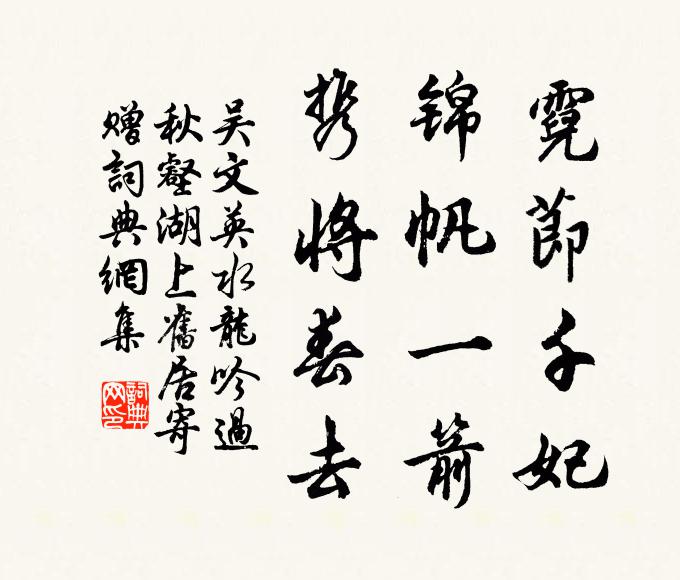 霓節千妃
锦帆一箭
携將春去
吴文英水龍吟過
秋壑湖上舊居寄
贈詞典網集
詞典網印